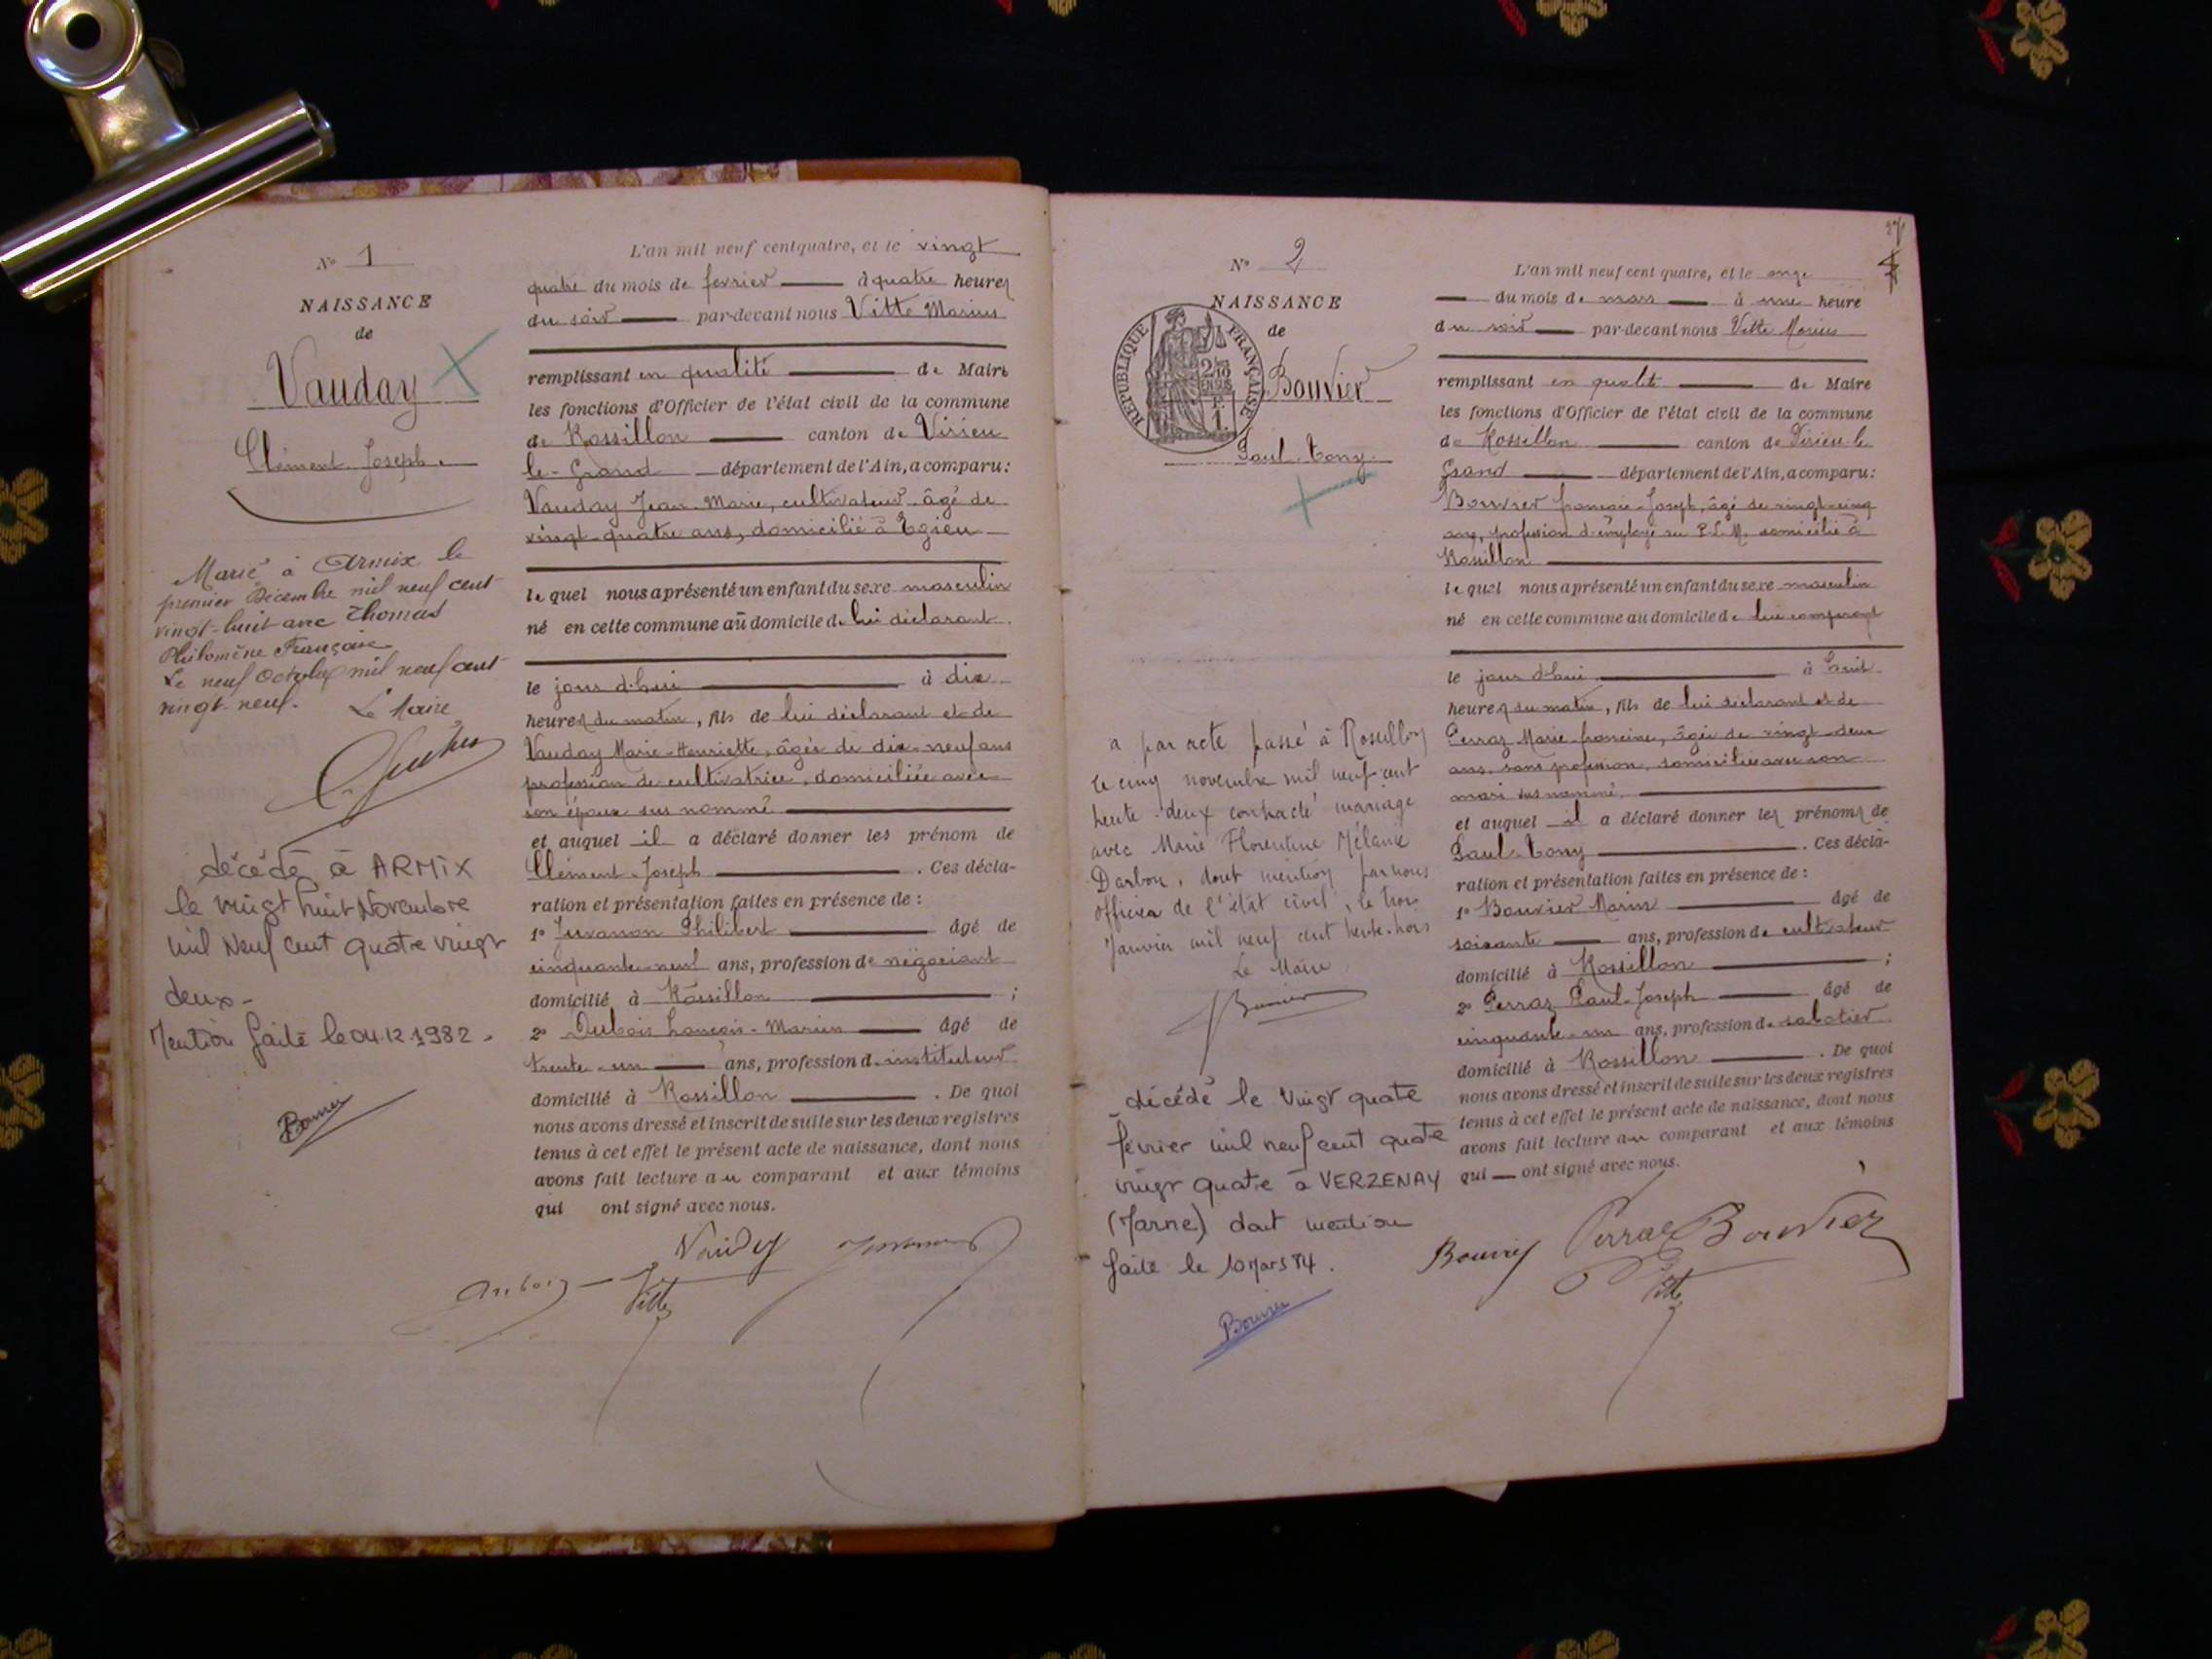 N° 1
NAISSANCE
de
Vauday
Clément Joseph
Marié à Armix le
premier Décembre mil neuf cent
vingt-huit avec Thomas
Philomène Française
Le neuf Octobre mil neuf cent
vingt-neuf. Le Maire
décédé à ARMIX
le vingt huit Novembre
mil Neuf cent quatre vingt
deux-
Mention faite le 04.12.1982.
Bouvier
L'an mil neuf cent quatre, et le vingt
quatre du mois de fevrier à quatre heures
du soir par-devant nous Vitte Marius
remplissant en qualité de Maire
les fonctions d'Officier de l'état civil de la commune
de Rossillon canton de Virieu
le-Grand département de l'Ain, a comparu:
Vauday Jean-Marie, cultivateur, âgé de
vingt-quatre ans, domicilié à Egieu
le quel nous a présenté un enfant du sexe masculin
né en cette commune au domicile de lui déclarant.
le jour d'hui à dix
heures du matin, fils de lui déclarant et de
Vauday Marie-Henriette, âgée de dix-neuf ans
profession de cultivatrice, domiciliée avec
son époux sus nommé
et auquel il a déclaré donner les prénom de
Clément-Joseph. Ces décla-
ration et présentation faites en présence de :
1° Juvanon Philibert âgé de
cinquante-neuf ans, profession de négociant
domicilié à Rossillon ;
2° Dubois françois-Marius âgé de
trente-un ans, profession d'instituteur
domicilié à Rossillon. De quoi
nous avons dressé et inscrit de suite sur les deux registres
tenus à cet effet le présent acte de naissance, dont nous
avons fait lecture au comparant et aux témoins
qui ont signé avec nous.
Vauday
Dubois
Vitte
N° 2
NAISSANCE
de
RÉPUBLIQUE FRANÇAISE
Bouvier
Paul-Tony
a par acte passé à Rossillon
le cinq novembre mil neuf cent
trente-deux contracté mariage
avec Marie Florentine Mélanie
Darbon, dont mention par nous
officier de l'état civil, le trois
Janvier mil neuf cent trente-trois
Le Maire
Bouvier
décédé le Vingt quatre
février mil neuf cent quatre
vingt quatre à VERZENAY
(Marne) dont mention
faite le 10 Mars 84.
Bouvier
L'an mil neuf cent quatre, et le onze
du mois de mars à une heure
du soir par-devant nous Vitte Marius
remplissant en qualité de Maire
les fonctions d'Officier de l'état civil de la commune
de Rossillon canton de Virieu le
Grand département de l'Ain, a comparu:
Bouvier françois-Joseph, âgé de vingt-cinq
ans, profession d'employé au P.L.M. domicilié à
Rossillon
le quel nous a présenté un enfant du sexe masculin
né en cette commune au domicile de lui comparant
le jour d'hui à huit
heures du matin, fils de lui déclarant et de
Perraz Marie-francine, âgée de vingt-deux
ans, sans profession, domiciliée avec son
mari sus nommé
et auquel il a déclaré donner les prénoms de
Paul-Tony. Ces décla-
ration et présentation faites en présence de :
1° Bouvier Marin âgé de
soixante ans, profession de cultivateur
domicilié à Rossillon ;
2° Perraz Paul-Joseph âgé de
cinquante-un ans, profession de sabotier
domicilié à Rossillon. De quoi
nous avons dressé et inscrit de suite sur les deux registres
tenus à cet effet le présent acte de naissance, dont nous
avons fait lecture au comparant et aux témoins
qui ont signé avec nous.
Bouvier Perraz Bouvier
Vitte